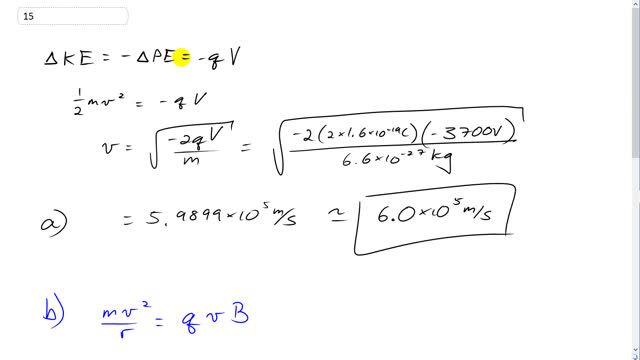 15
ΔKE = -ΔPE = -qV
½mv² = -qV
v = √(-2qV/m) = √(-2(2×1.6×10⁻¹⁹C)(-3700V)/6.6×10⁻²⁷kg)
a) = 5.9899×10⁵m/s ≃ 6.0×10⁵m/s
b) mv²/r = qvB